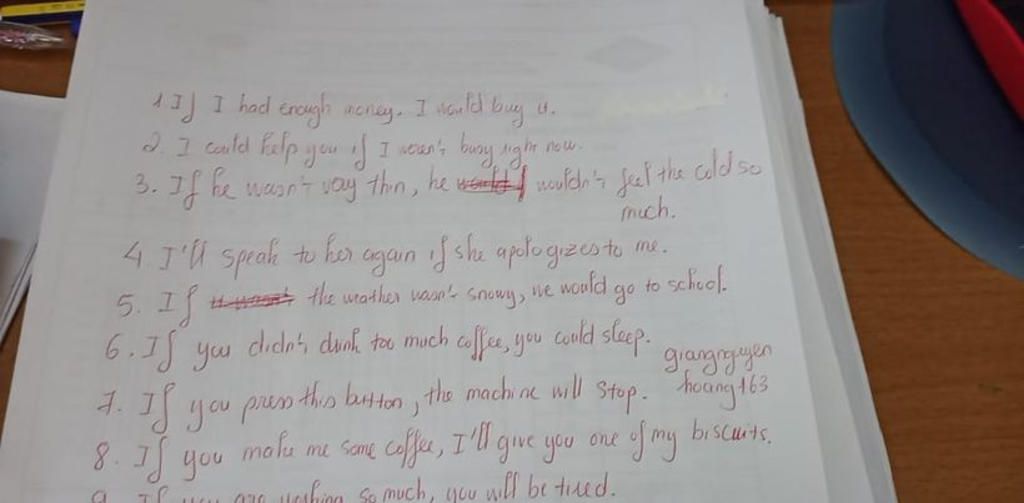 1. If I had enough money, I would buy it.
2. I could help you if I weren't busy right now.
3. If he wasn't very thin, he wouldn't feel the cold so
much.
4. I'll speak to her again if she apologizes to me.
5. If the weather wasn't snowy, we would go to school.
6. If you didn't drink too much coffee, you could sleep.
giangnguyen
hoang163
7. If you press this button, the machine will stop.
8. If you make me some coffee, I'll give you one of my biscuits.
9. If you are so much, you will be tired.